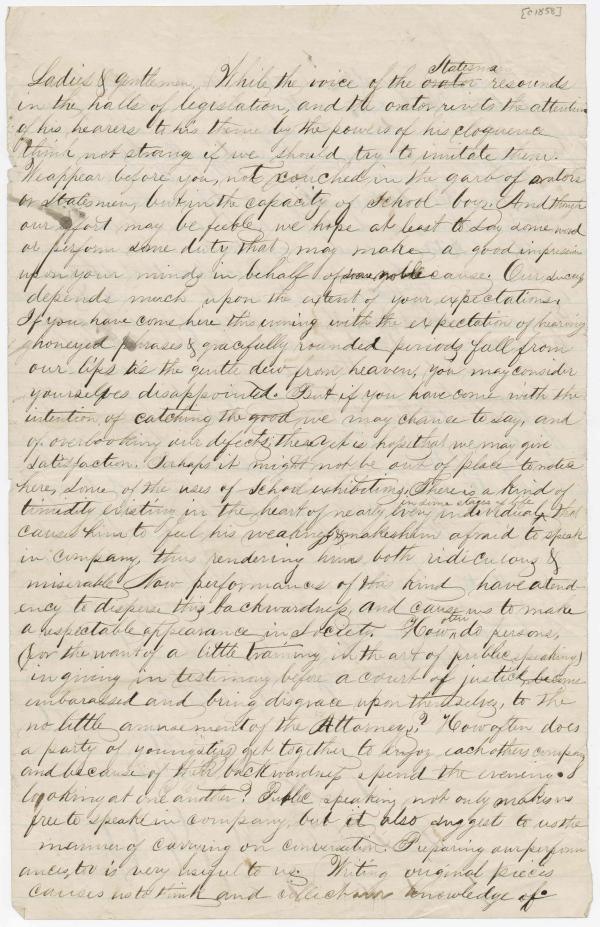 [c1858]
Statesma
Ladies & gentlemen, While the voice of the orator resounds
in the halls of legislation, and the orator rivets the attention
of his hearers to his theme by the powers of his eloquence
think not strange if we should try to imitate them.
We appear before you, not couched in the garb of orators
or statesmen, but in the capacity of School-boys. And though
our effort may be feeble, we hope at least to say some word
or perform some duty that may make a good impression
upon your minds in behalf of some noble cause. Our success
depends much upon the extent of your expectations.
If you have come here this evening with the expectation of hearing
honeyed phrases & gracefully rounded periods fall from
our lips as the gentle dew from heaven, you may consider
yourselves disappointed. But if you have come with the
intention of catching the good we may chance to say, and
of overlooking our defects, then it is hope that we may give
satisfaction. Perhaps it might not be out of place to notice
here, some of the uses of School exhibitions. There is a kind of
in some stage of life
timidity existing in the heart of nearly every individual, that
causes him to feel his weakness & makes him afraid to speak
in company, thus rendering him both ridiculous &
miserable. Now performances of this kind have a tend
ency to disperse this backwardness, and cause us to make
a respectable appearance in society. How often do persons,
(for the want of a little training in the art of public speaking)
in giving in testimony before a court of justice, become
embarassed and bring disgrace upon themselves, to the
no little amusement of the Attorneys? How often does
a party of youngsters get together to enjoy each others company
and because of their backwardness spend the evening
looking at one another? Public speaking not only makes us
free to speak in company, but it also suggest to us the
manner of carrying on conversation. Preparing our perform
ances, too is very useful to us. Writing original pieces
causes us to think and collect our knowledge of